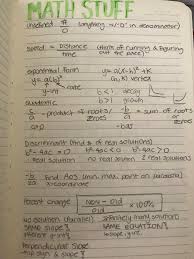 MATH STUFF
undefined # (anything w/ "0" in denominator)
speed = Distance (think of running & figuring
time out the pace!)
exponential form y = a(x-h)²+K
y = a(b)ˣ (h,K) vertex
y-int rate b<1 decay
quadratic b>1 growth
c/a = product of roots/zeros -b/a = sum of roots or zeros
Discriminant (find # of real solutions)
b²-4ac<0 b²-4ac=0 b²-4ac>0
no real solution no real solution 2 real solutions
-b/2a Find AOS (min/max point on parabola)
x-coordinate
Percent change new - old / old x 100%
no solution (parallel) infinitely many solutions
SAME SLOPE SAME EQUATION
diff y-int slope, y-int
Perpendicular Slope
flip sign & slope